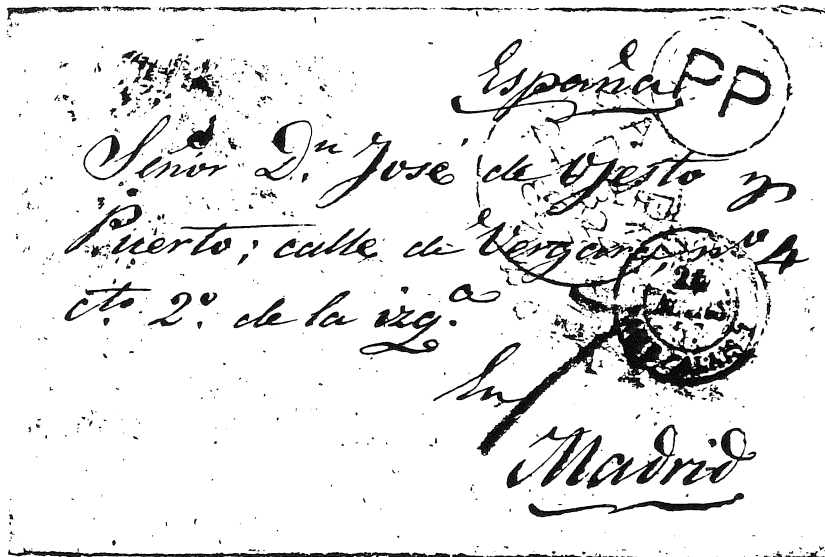 España
PP
Señor D.n José de Ojesto y
Puerto; calle de Vergara, nº 4
cto. 2º. de la izq.a
En
Madrid